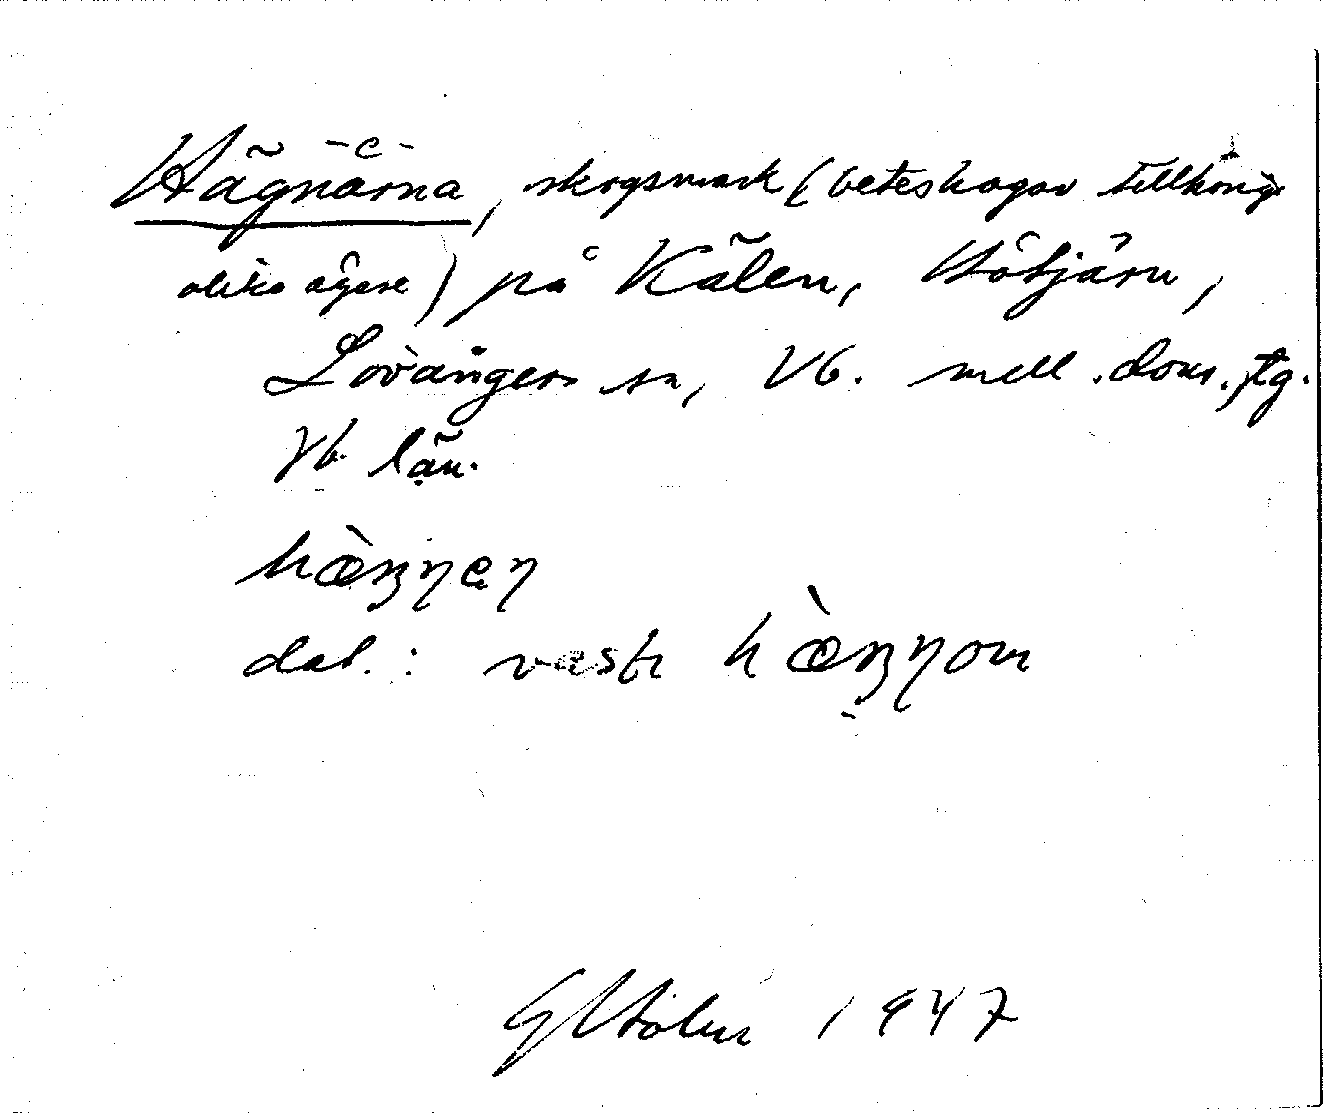 Hägnärna, skogsmark (beteshagar tillhörig
olika ägare) på Kälen, Hötjärn,
Lövångers sn, Vb. mell. doms., tg.
Vb. län.
hæ̀ŋŋen
dat.: vestɪ hæ̀ŋŋom
G Holm 1947